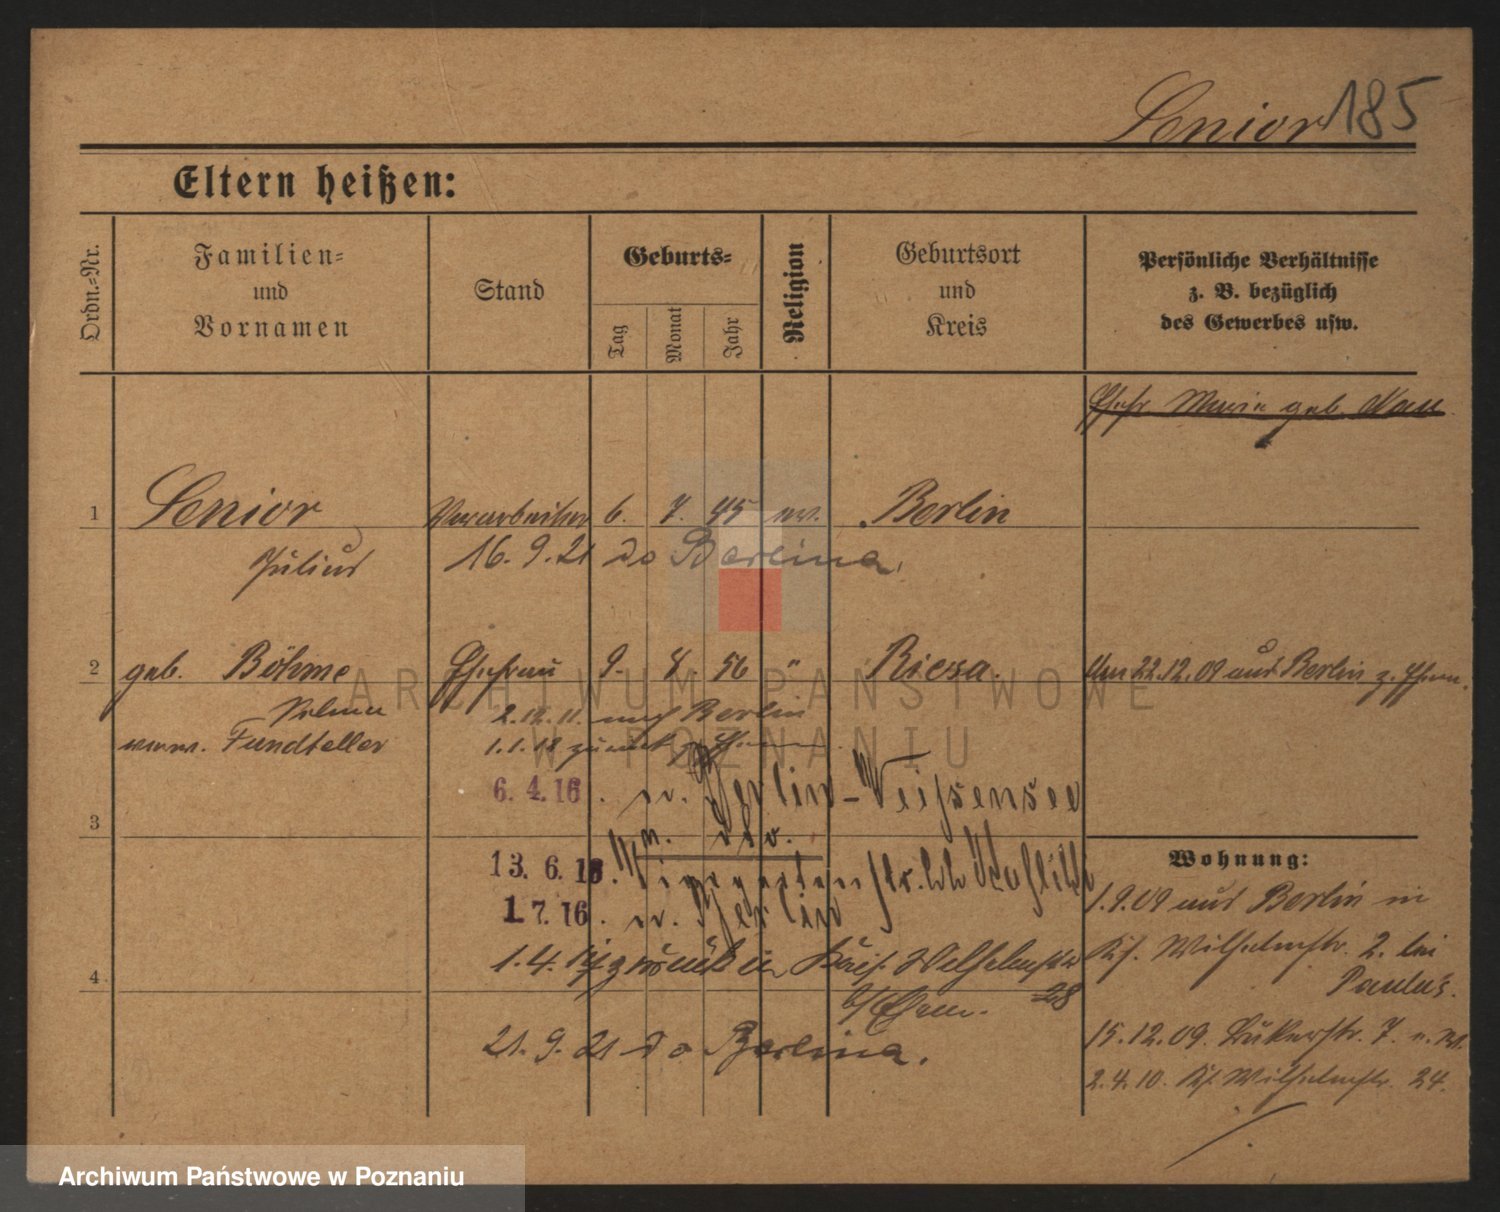 Senior 185
Eltern heißen:
Ordn.=Nr.
Familien=
und
Vornamen
Stand
Geburts=
Tag
Monat
Jahr
Religion
Geburtsort
und
Kreis
Persönliche Verhältnisse
z. B. bezüglich
des Gewerbes usw.
Marie geb.
1 Senior Vorarbeiter 6. 7. 45 ev. Berlin
Julius 16. 9. 21 do Berlina.
2 geb. Böhme Ehefrau 9. 8. 56 " Riesa. 22.12.09 aus Berlin z.
verw. Fundteller
2.12.11. nach Berlin
1.1.18 zurück z.
6. 4. 16. n. Berlin-Weissensee
3
13. 6. 16.
1 7. 16. n. Berlin
Wohnung:
1.9.09 aus Berlin in
1.4. zurück Kais. Wilhelmstr
28
Wilhelmstr. 2. bei
Paulus.
4
21. 9. 21 do Berlina.
15.12.09. 7.
2.4.10. Wilhelmstr. 24.
ARCHIWUM PAŃSTWOWE
W POZNANIU
Archiwum Państwowe w Poznaniu